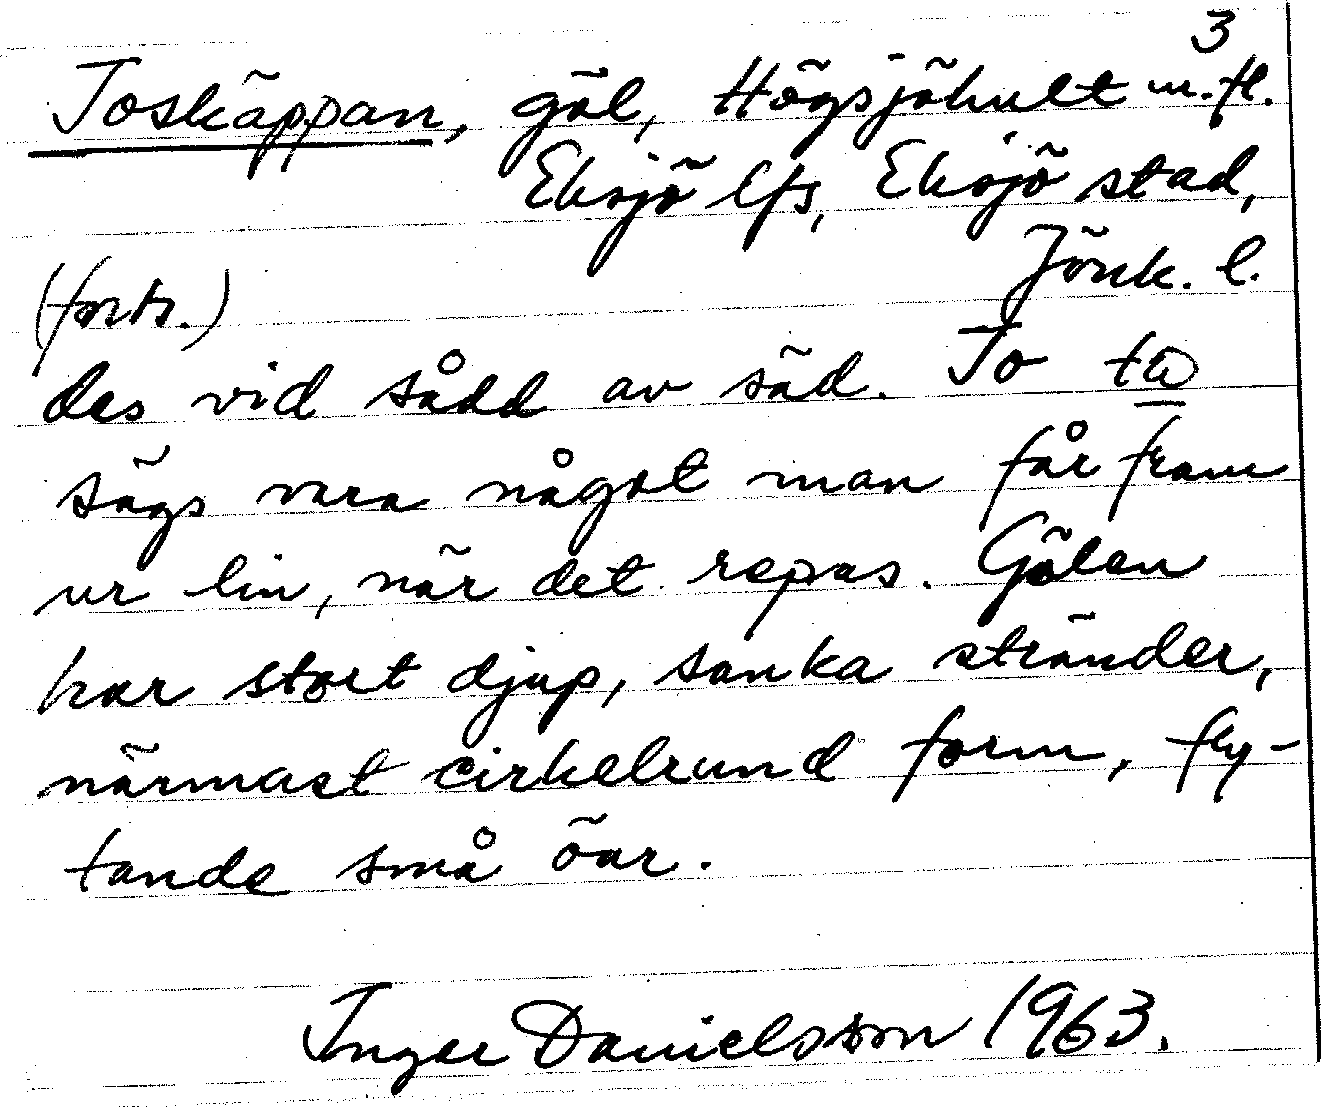 3
Toskäppan, göl, Högsjöhult m.fl.
Eksjö lfs, Eksjö stad,
Jönk. l.
(forts.)
des vid sådd av säd. To
sägs vara något man får fram
ur lin, när det repas. Gölen
har stort djup, sanka stränder,
närmast cirkelrund form, fly-
tande små öar.
Inger Danielsson 1963.